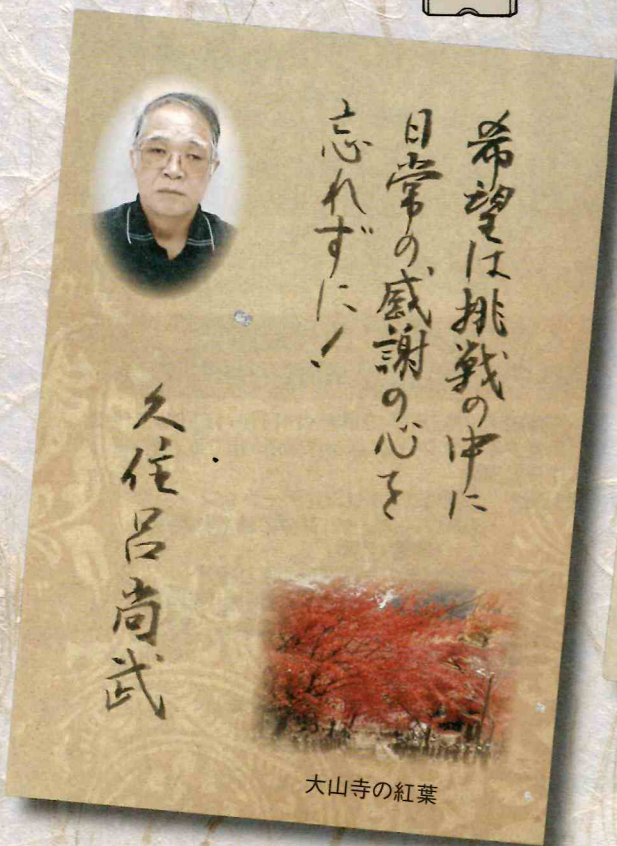 希望は挑戦の中に
日常の感謝の心を
忘れずに!
久住呂尚武
大山寺の紅葉